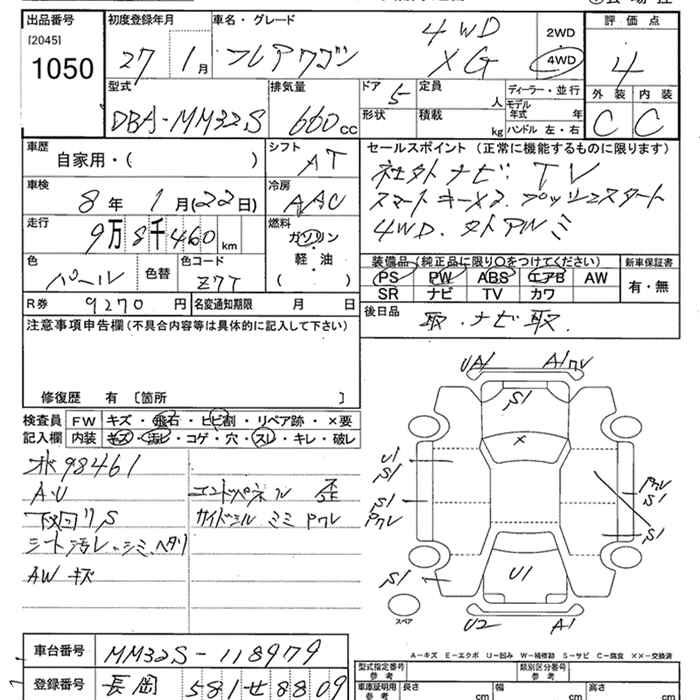 出品番号 初度登録年月 車名・グレード 4WD 2WD 評価点
[2045] 1050 27 1月 フレアワゴン XG 4WD 4
型式 排気量 ドア 定員 ディーラー・並行 外装 内装
DBA-MM32S 660cc 5 人 モデル年式 年 C C
形状 積載 kg ハンドル 左・右
車歴 シフト セールスポイント (正常に機能するものに限ります)
自家用・( ) AT 社外ナビ TV
車検 冷房 スマートキーX2. プッシュスタート
8年1月(22日) AAC 4WD. 社外AW ミ
走行 燃料
9万8千460km ガソリン・軽・油 ( )
色 色替 色コード 装備品(純正品に限り○をつけてください) 新車保証書
パール Z7T PS PW ABS エアB AW 有・無
SR ナビ TV カワ
R券 9270円 名変通知期限 月 日 後日品 取.ナビ取.
注意事項申告欄(不具合内容等は具体的に記入して下さい)
修復歴 有 〔箇所 〕
検査員 FW キズ・飛石・ヒビ割・リペア跡・×要
記入欄 内装 キズ・汚レ・コゲ・穴・スレ・キレ・破レ
98461
A.U エンドパネル 歪
下回リS サイドシル ミミ Pクレ
シート汚レ.シミ.ヘタリ
AWキズ
UA1 A1クレ
S1
×
U1 S1
S1 Pクレ
Pクレ S1
S1
S1 U1
スペア U2 A1
A-キズ E-エクボ U-凹み W-補修跡 S-サビ C-腐食 XX-交換済
車台番号 MM32S-118979
登録番号 長岡 581 せ 8809
型式指定番号 類別区分番号
参考 参考
車庫証明用 長さ cm 幅 cm 高さ cm
参考